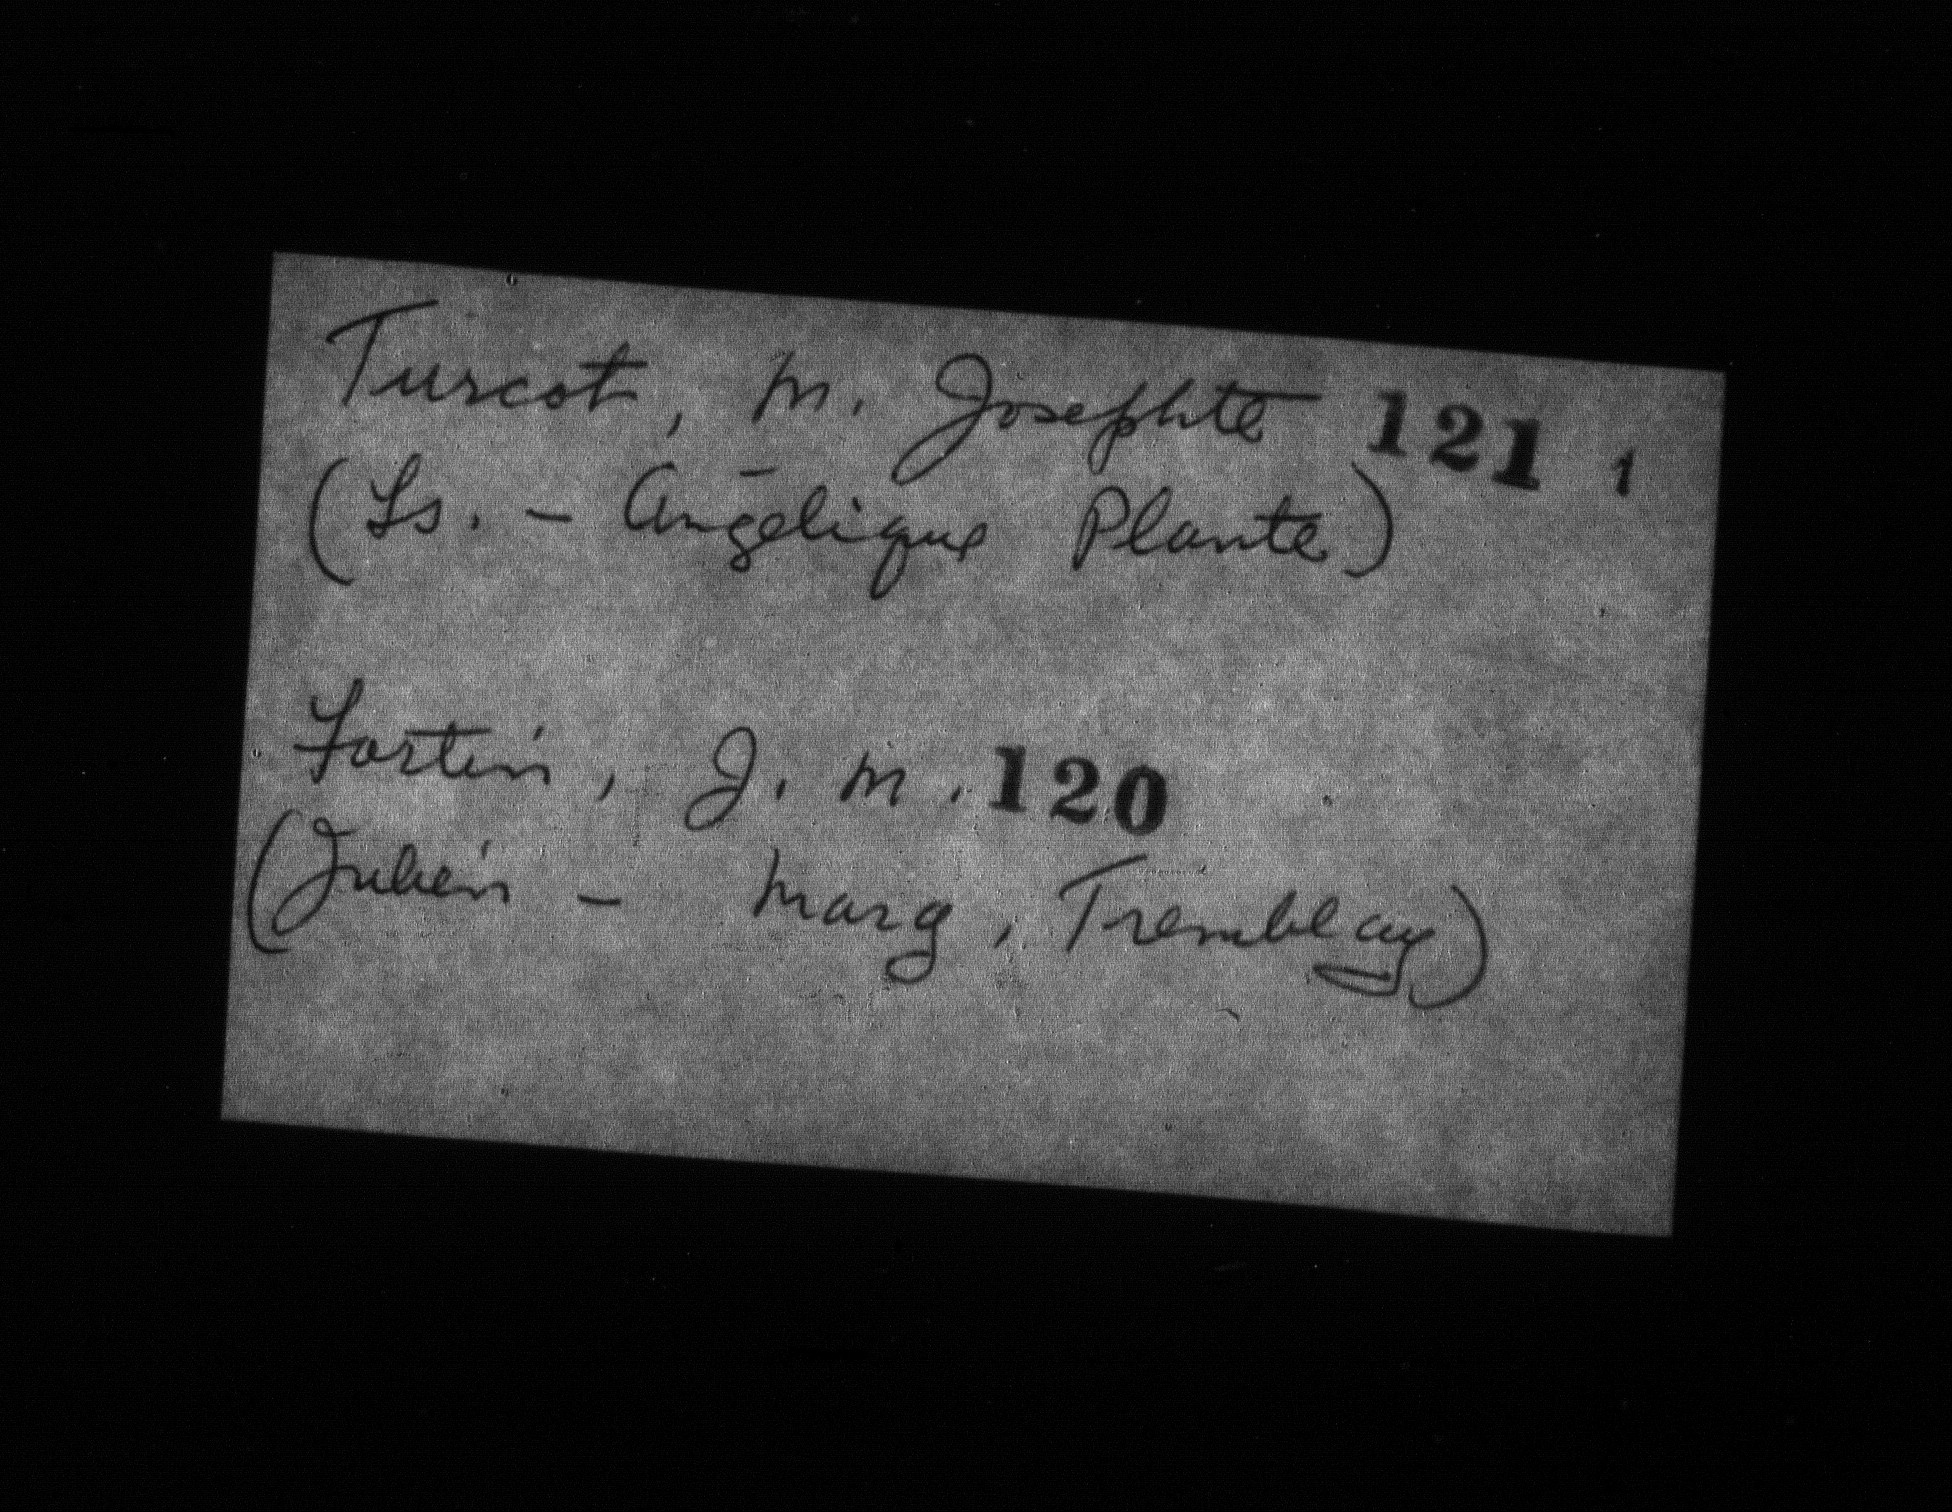 Turcot, M. Josephte 121 1
(Ls. - Angélique Plante)
Fortin, J. M. 120
(Julien - Marg, Tremblay)